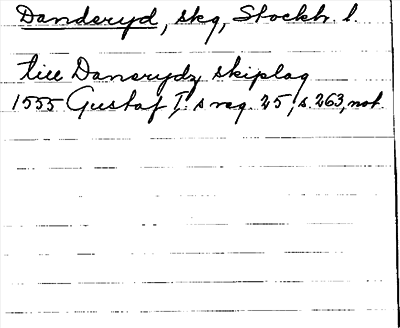 Danderyd, skg, Stockh. l.
till Dansrydz skiplag
1555 Gustaf I:s reg. 25, s. 263, not.